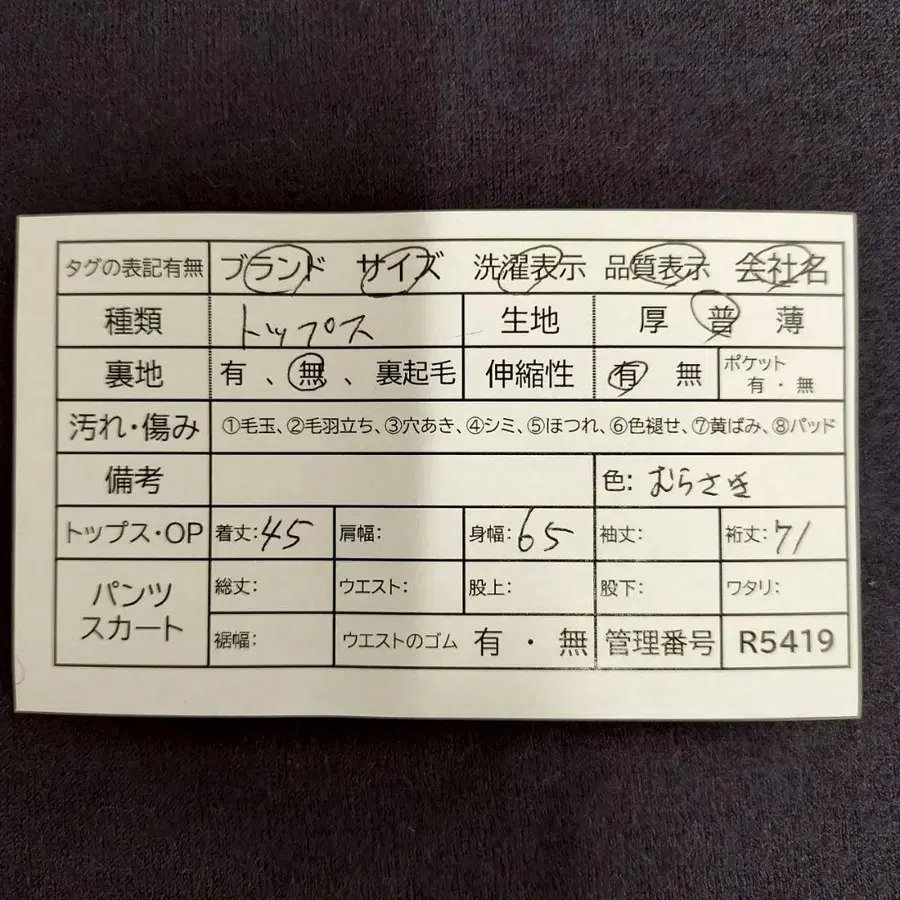 タグの表記有無 ブランド サイズ 洗濯表示 品質表示 会社名
種類 トップス 生地 厚 普 薄
裏地 有、無、裏起毛 伸縮性 有 無 ポケット 有・無
汚れ・傷み ①毛玉、②毛羽立ち、③穴あき、④シミ、⑤ほつれ、⑥色褪せ、⑦黄ばみ、⑧パッド
備考 色: むらさき
トップス・OP 着丈: 45 肩幅: 身幅: 65 袖丈: 裄丈: 71
パンツ スカート 総丈: ウエスト: 股上: 股下: ワタリ:
裾幅: ウエストのゴム 有・無 管理番号 R5419